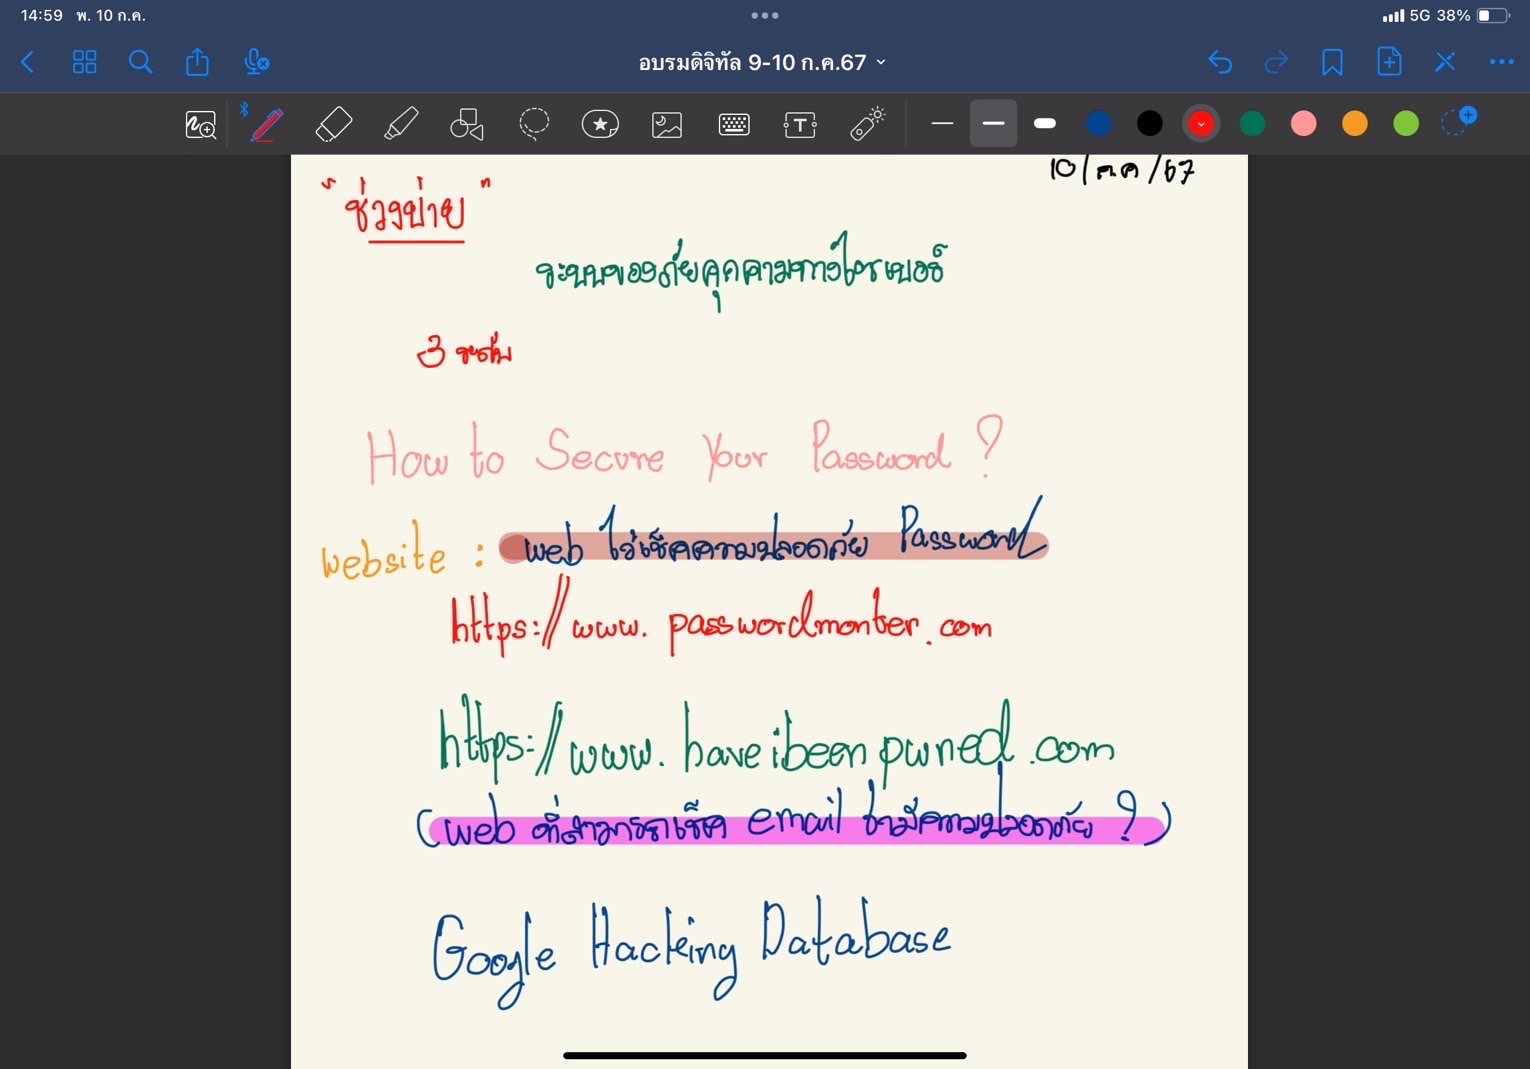 14:59 พ. 10 ก.ค.
5G 38%
อบรมดิจิทัล 9-10 ก.ค.67
10/ก.ค/67
"ช่วงบ่าย"
ระบบของภัยคุกคามทางไซเบอร์
3 ระดับ
How to Secure Your Password ?
website : web ไว้เช็คความปลอดภัย Password
https://www.passwordmonter.com
https://www.haveibeenpwned.com
(web ที่สามารถเช็ค email ว่ามีความปลอดภัย ?)
Google Hacking Database